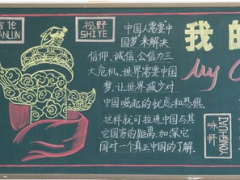 言论
YANLUN
视野
SHIYE
我的
My C
中国人需要中
国梦来解决
信仰、诚信、公信力三
大危机，世界需要中国
梦，让世界减少对
中国崛起的忧虑和恐惧。
这样就可拉进中国与其
它国家的距离，加深它
国对一个真正中国的了解。